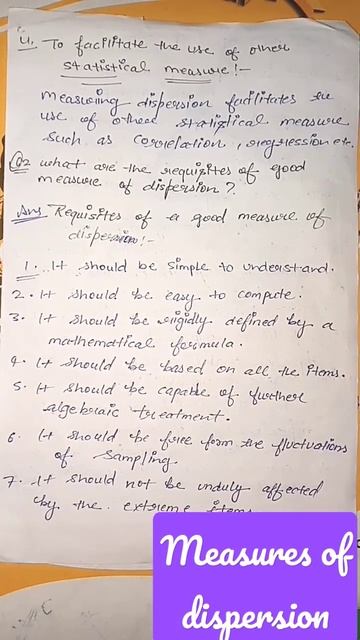 4. To facilitate the use of other
statistical measure :-
measuring dispersion facilitates the
use of other statistical measure
such as correlation, regression etc.
Q2 what are the requisites of good
measure of dispersion?
Ans Requisites of a good measure of
dispersion :-
1. It should be simple to understand.
2. It should be easy to compute.
3. It should be rigidly defined by a
mathematical formula.
4. It should be based on all the items.
5. It should be capable of further
algebraic treatment.
6. It should be free form the fluctuations
of sampling.
7. It should not be unduly affected
by the extreme items
Measures of
dispersion